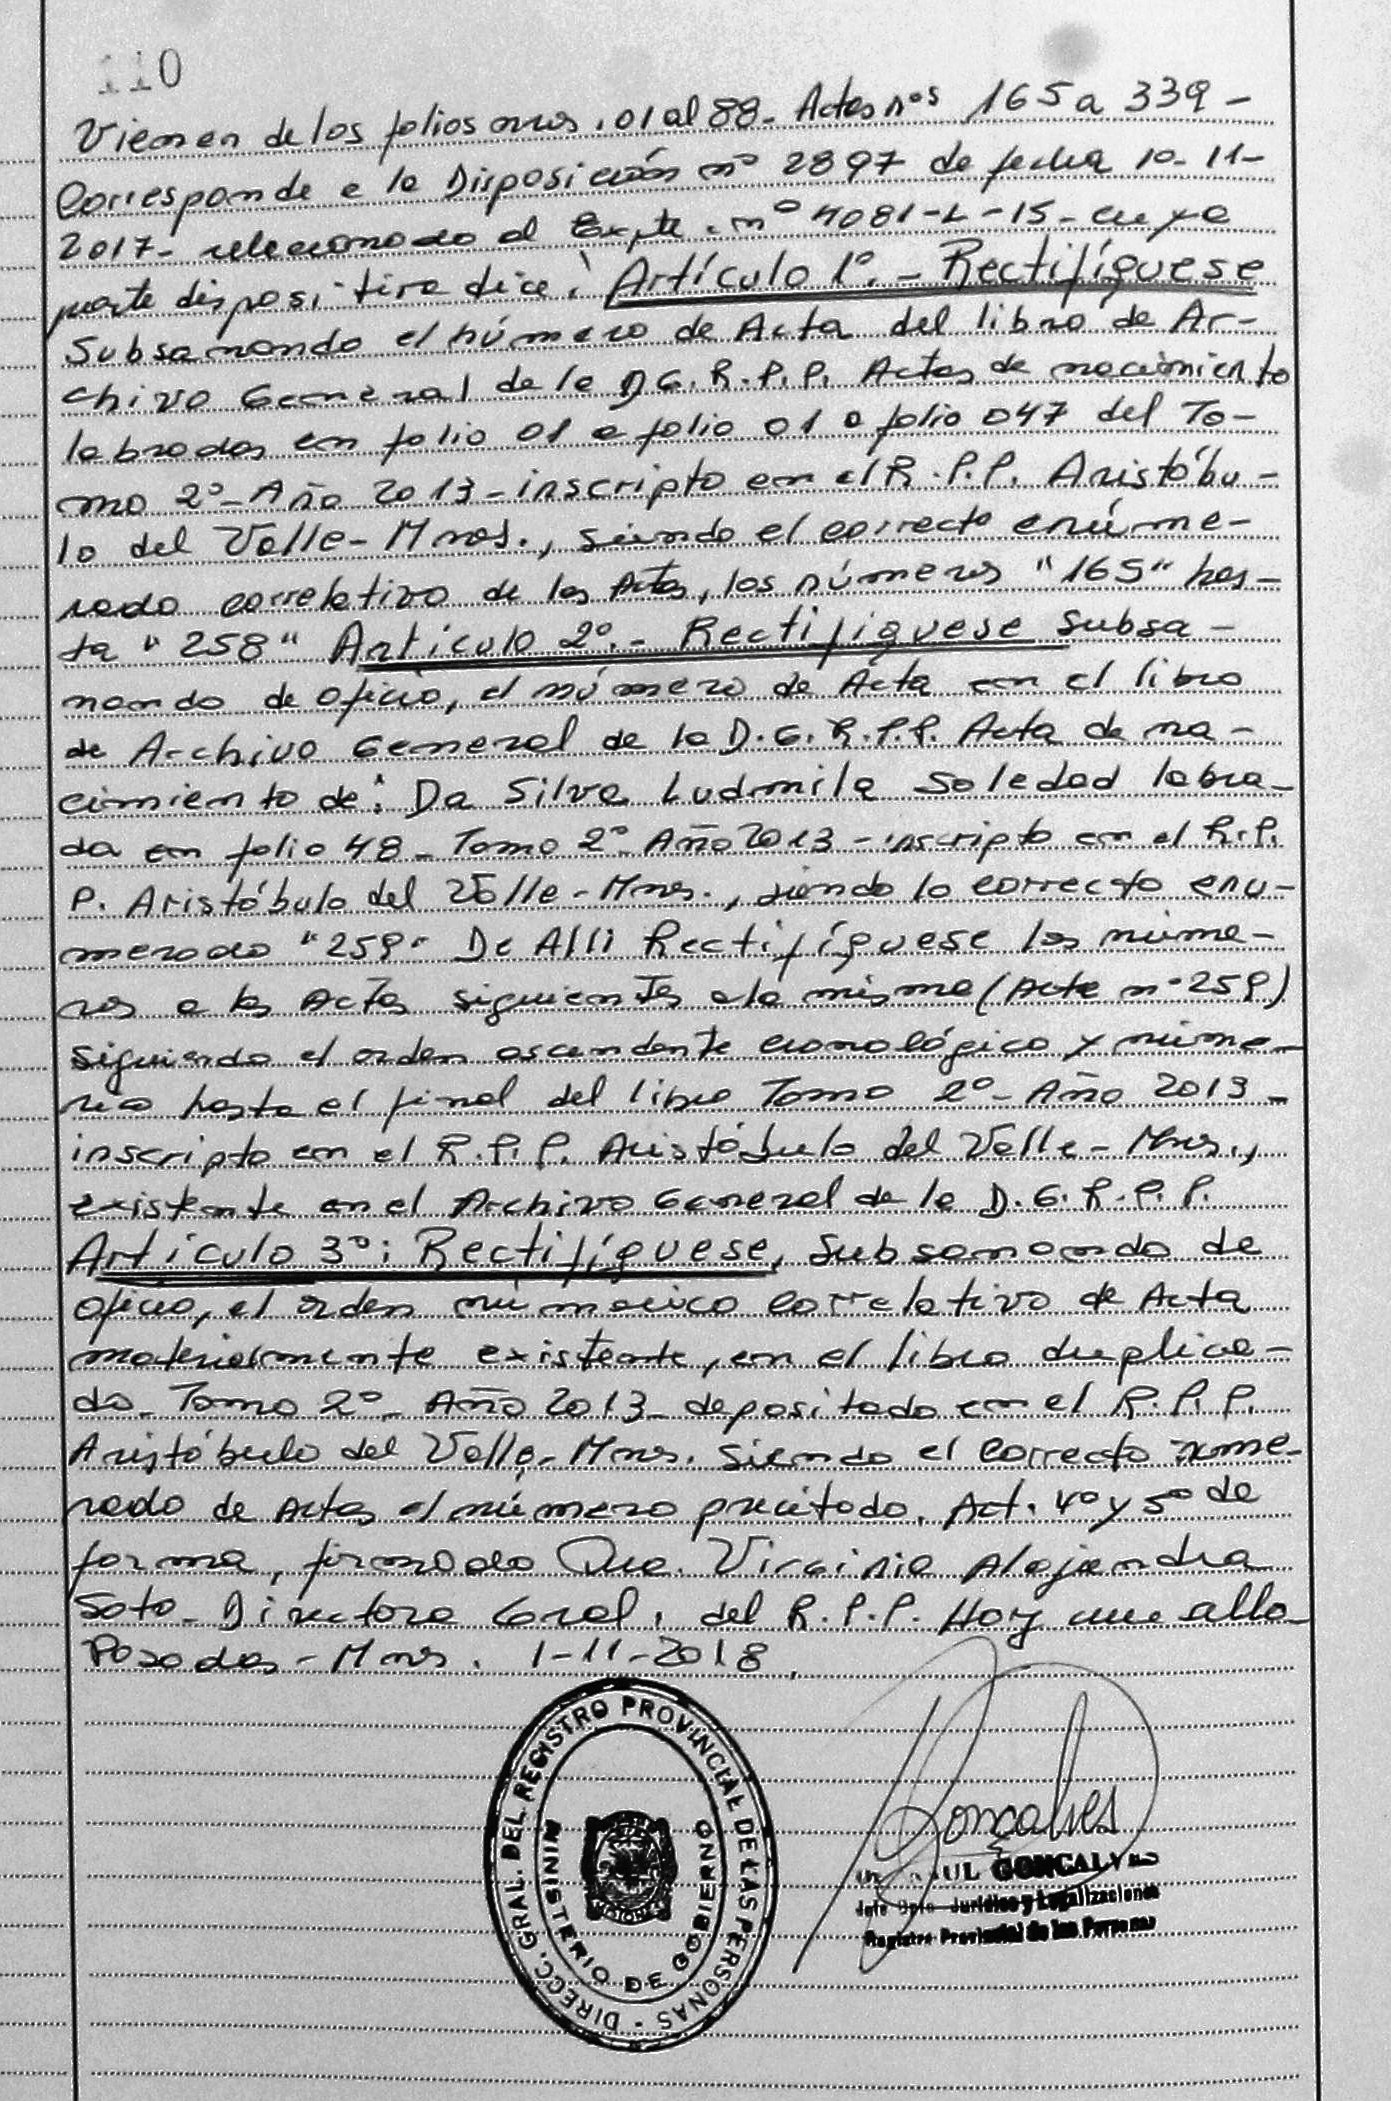 110
Vienen de los folios nros. 01 al 88_ Actas nos 165 a 339 -
Corresponde a la Disposición nº 2897 de fecha 10-11-
2017- relacionado al Expte. nº 4081-L-15- cuya
parte dispositiva dice: Artículo 1º.- Rectifíquese
Subsanando el número de Acta del libro de Ar-
chivo General de la D.G.R.P.P. Actas de nacimiento
labradas en folio 01 a folio 01 a folio 047 del To-
mo 2º- Año 2013- inscripto en el R.P.P. Aristóbu-
lo del Valle- Mnes., siendo el correcto enúme-
rado correlativo de las Actas, los números "165" has-
ta "258" Artículo 2º.- Rectifiquese subsa-
nando de oficio, el número de Acta en el libro
de Archivo General de la D.G.R.P.P. Acta de na-
cimiento de: Da Silva Ludmila Soledad labra-
da en folio 48_ Tomo 2º- Año 2013- inscripto en el R.P.
P. Aristóbulo del Valle- Mnes., siendo lo correcto enu-
merado "259" De Alli Rectifíquese los núme-
ros a las Actas siguientes a la misma (Acta nº 259)
siguiendo el orden ascendente cronológico y núme-
rico hasta el final del libro Tomo 2º- Año 2013-
inscripto en el R.P.P. Aristóbulo del Valle- Mnes.,
existente en el Archivo General de la D.G.R.P.P.
Artículo 3º: Rectifíquese, Subsanando de
oficio, el orden númerico correlativo de Acta
materialmente existente, en el libro duplica-
do_ Tomo 2º- Año 2013- depositado en el R.P.P.
Aristóbulo del Valle- Mnes. siendo el correcto nume-
rado de Actas el número precitado. Art. 4º y 5º de
forma, firmado Dra. Virginia Alejandra
Soto_ Directora Gral. del R.P.P. Hoy
Posadas- Mnes. 1-11-2018
DIRECC. GRAL. DEL REGISTRO PROVINCIAL DE LAS PERSONAS -
MINISTERIO DE GOBIERNO
Gonçalves
GONCALVES
Jefe Dpto. Jurídico y Legalizaciones
Registro Provincial de las Personas